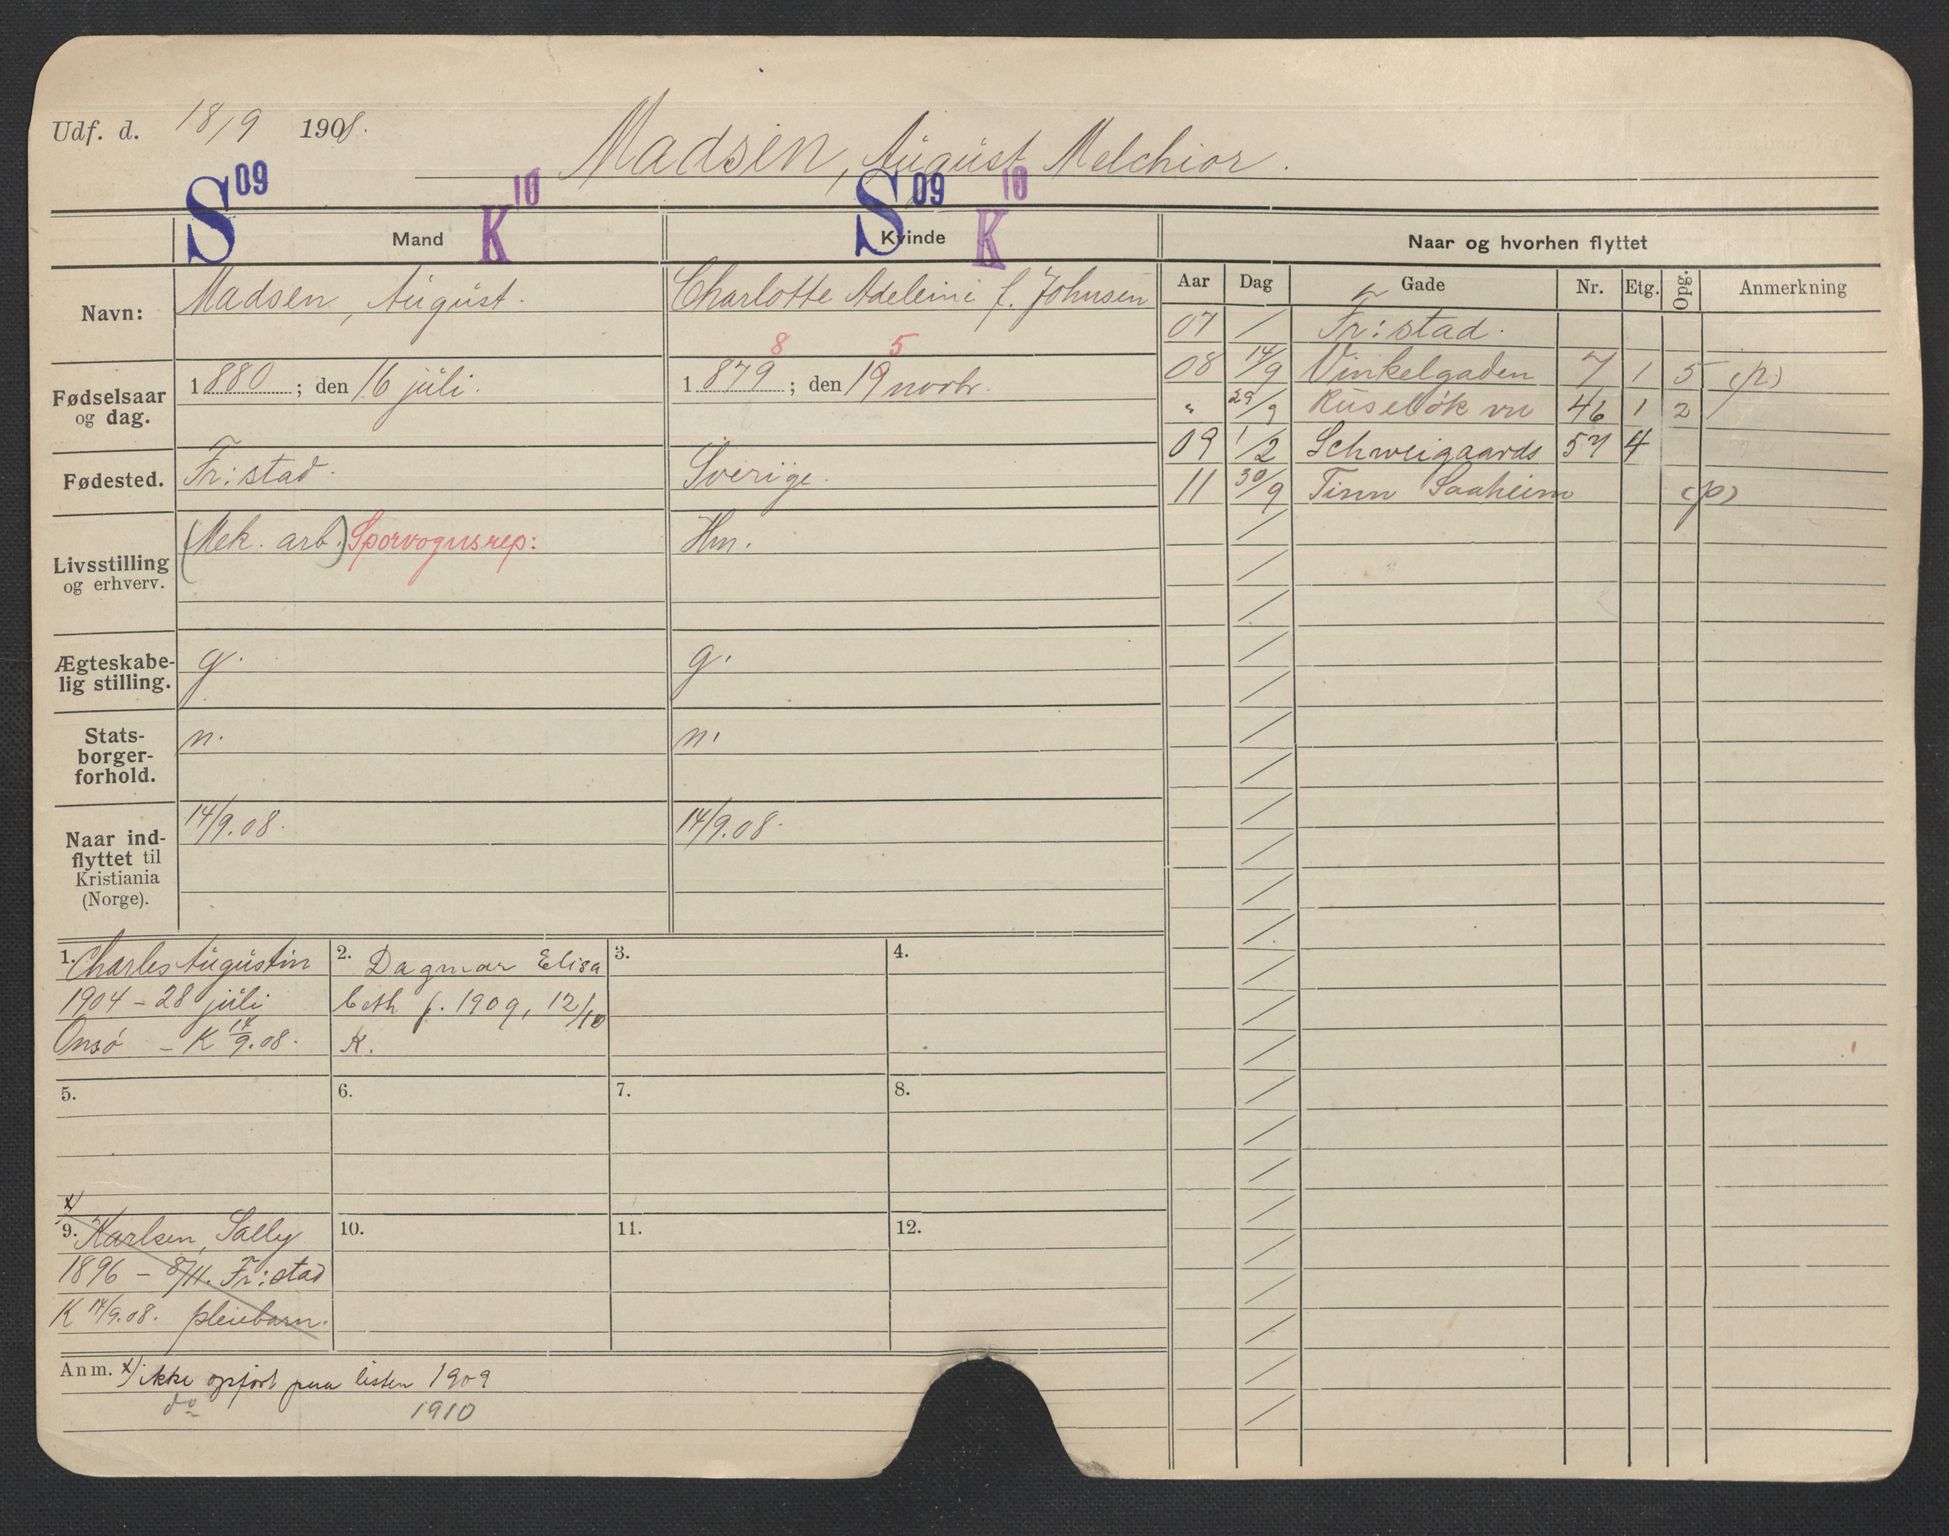 Udf. d. 18/9 1908.
Madsen, August Melchior.
S 09 K 10 S 09 K 10
Mand Kvinde Naar og hvorhen flyttet
Aar Dag Gade Nr. Etg. Opg. Anmerkning
Navn: Madsen, August. Charlotte Adeleine f. Johnsen
07 / Fr:stad.
8 5
Fødselsaar og dag. 1880; den 16 juli. 1879; den 19 novbr.
08 14/9 Vinkelgaden 7 1 5 (p)
" 29/9 Ruseløk vn 46 1 2 /
09 1/2 Schweigaards 57 4
Fødested. Fr:stad. Sverige.
11 30/9 Tinn Saaheim (p)
Livsstilling og erhverv. (Mek. arb.) Sporvognsrep: Hm.
Ægteskabelig stilling. g. g.
Statsborgerforhold. n. n.
Naar indflyttet til Kristiania (Norge). 14/9.08. 14/9.08.
1. Charles Augustin
1904 - 28 juli
Onsø - K 14/9.08.
2. Dagmar Elisa
beth f. 1909, 12/10
K.
3.
4.
5.
6.
7.
8.
x)
9. Karlsen, Sally
1896 - 8/11. Fr:stad
K 14/9.08. pleiebarn.
10.
11.
12.
Anm. x) ikke opført paa listen 1909
do 1910